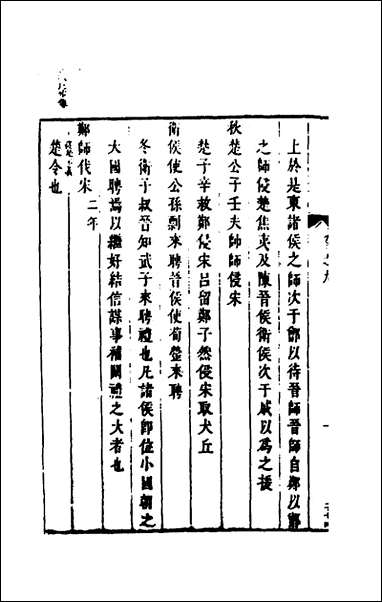 上於是東諸侯之師次于鄫以待晉師晉師自鄭以鄫
之師侵楚焦夷及陳晉侯衛侯次于戚以為之援
秋楚公子壬夫帥師侵宋
楚子辛救鄭侵宋呂留鄭子然侵宋取犬丘
衛侯使公孫剽來聘晉侯使荀罃來聘
冬衛子叔晉知武子來聘禮也凡諸侯卽位小國朝之
大國聘焉以繼好結信謀事補闕禮之大者也
鄭師伐宋二年
楚令也